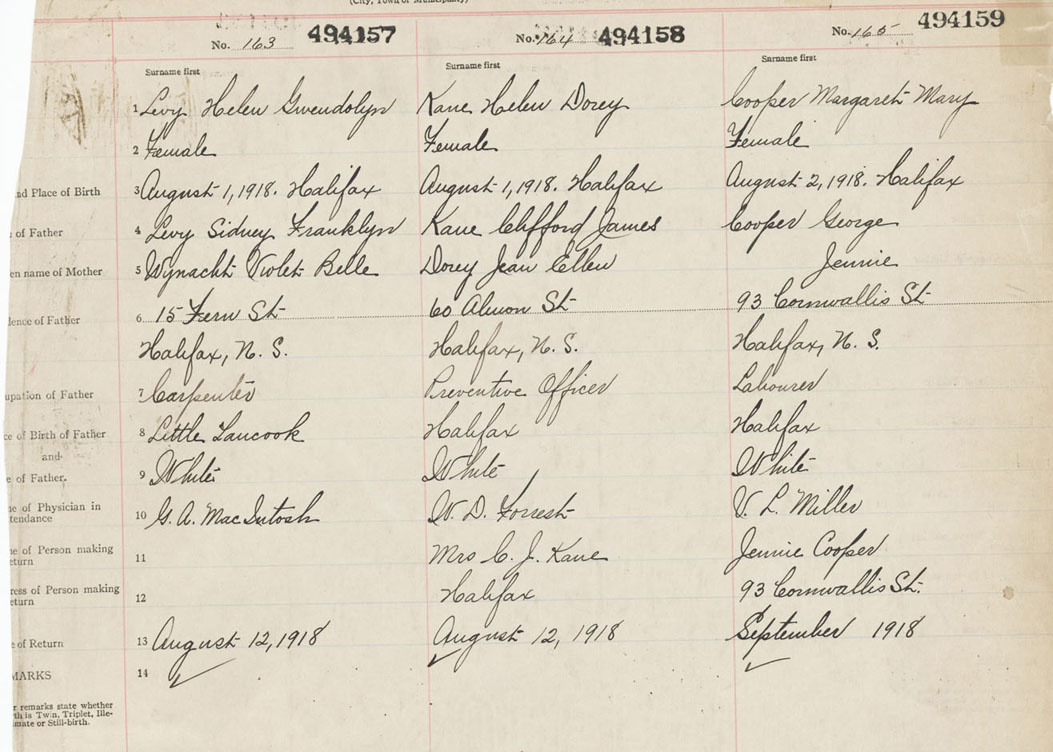 (City, Town or Municipality)
No. 163 494157 No. 164 494158 No. 165 494159
Surname first Surname first Surname first
1 Levy Helen Gwendolyn Kane Helen Dorey Cooper Margaret Mary
2 Female Female Female
nd Place of Birth 3 August 1, 1918. Halifax August 1, 1918. Halifax August 2, 1918. Halifax
of Father 4 Levy Sidney Franklyn Kane Clifford James Cooper George
en name of Mother 5 Wynacht Violet Belle Dorey Jean Ellen Jennie
dence of Father 6 15 Fern St 60 Almon St 93 Cornwallis St
Halifax, N. S. Halifax, N. S. Halifax, N. S.
upation of Father 7 Carpenter Preventive Officer Labourer
ce of Birth of Father 8 Little Tancook Halifax Halifax
and
e of Father. 9 White White White
e of Physician in
ttendance 10 G. A. MacIntosh W. D. Forrest V. L. Miller
e of Person making
eturn 11 Mrs C. J. Kane Jennie Cooper
ress of Person making
eturn 12 Halifax 93 Cornwallis St.
e of Return 13 August 12, 1918 August 12, 1918 September 1918
MARKS 14
r remarks state whether
th is Twin, Triplet, Ille-
imate or Still-birth.